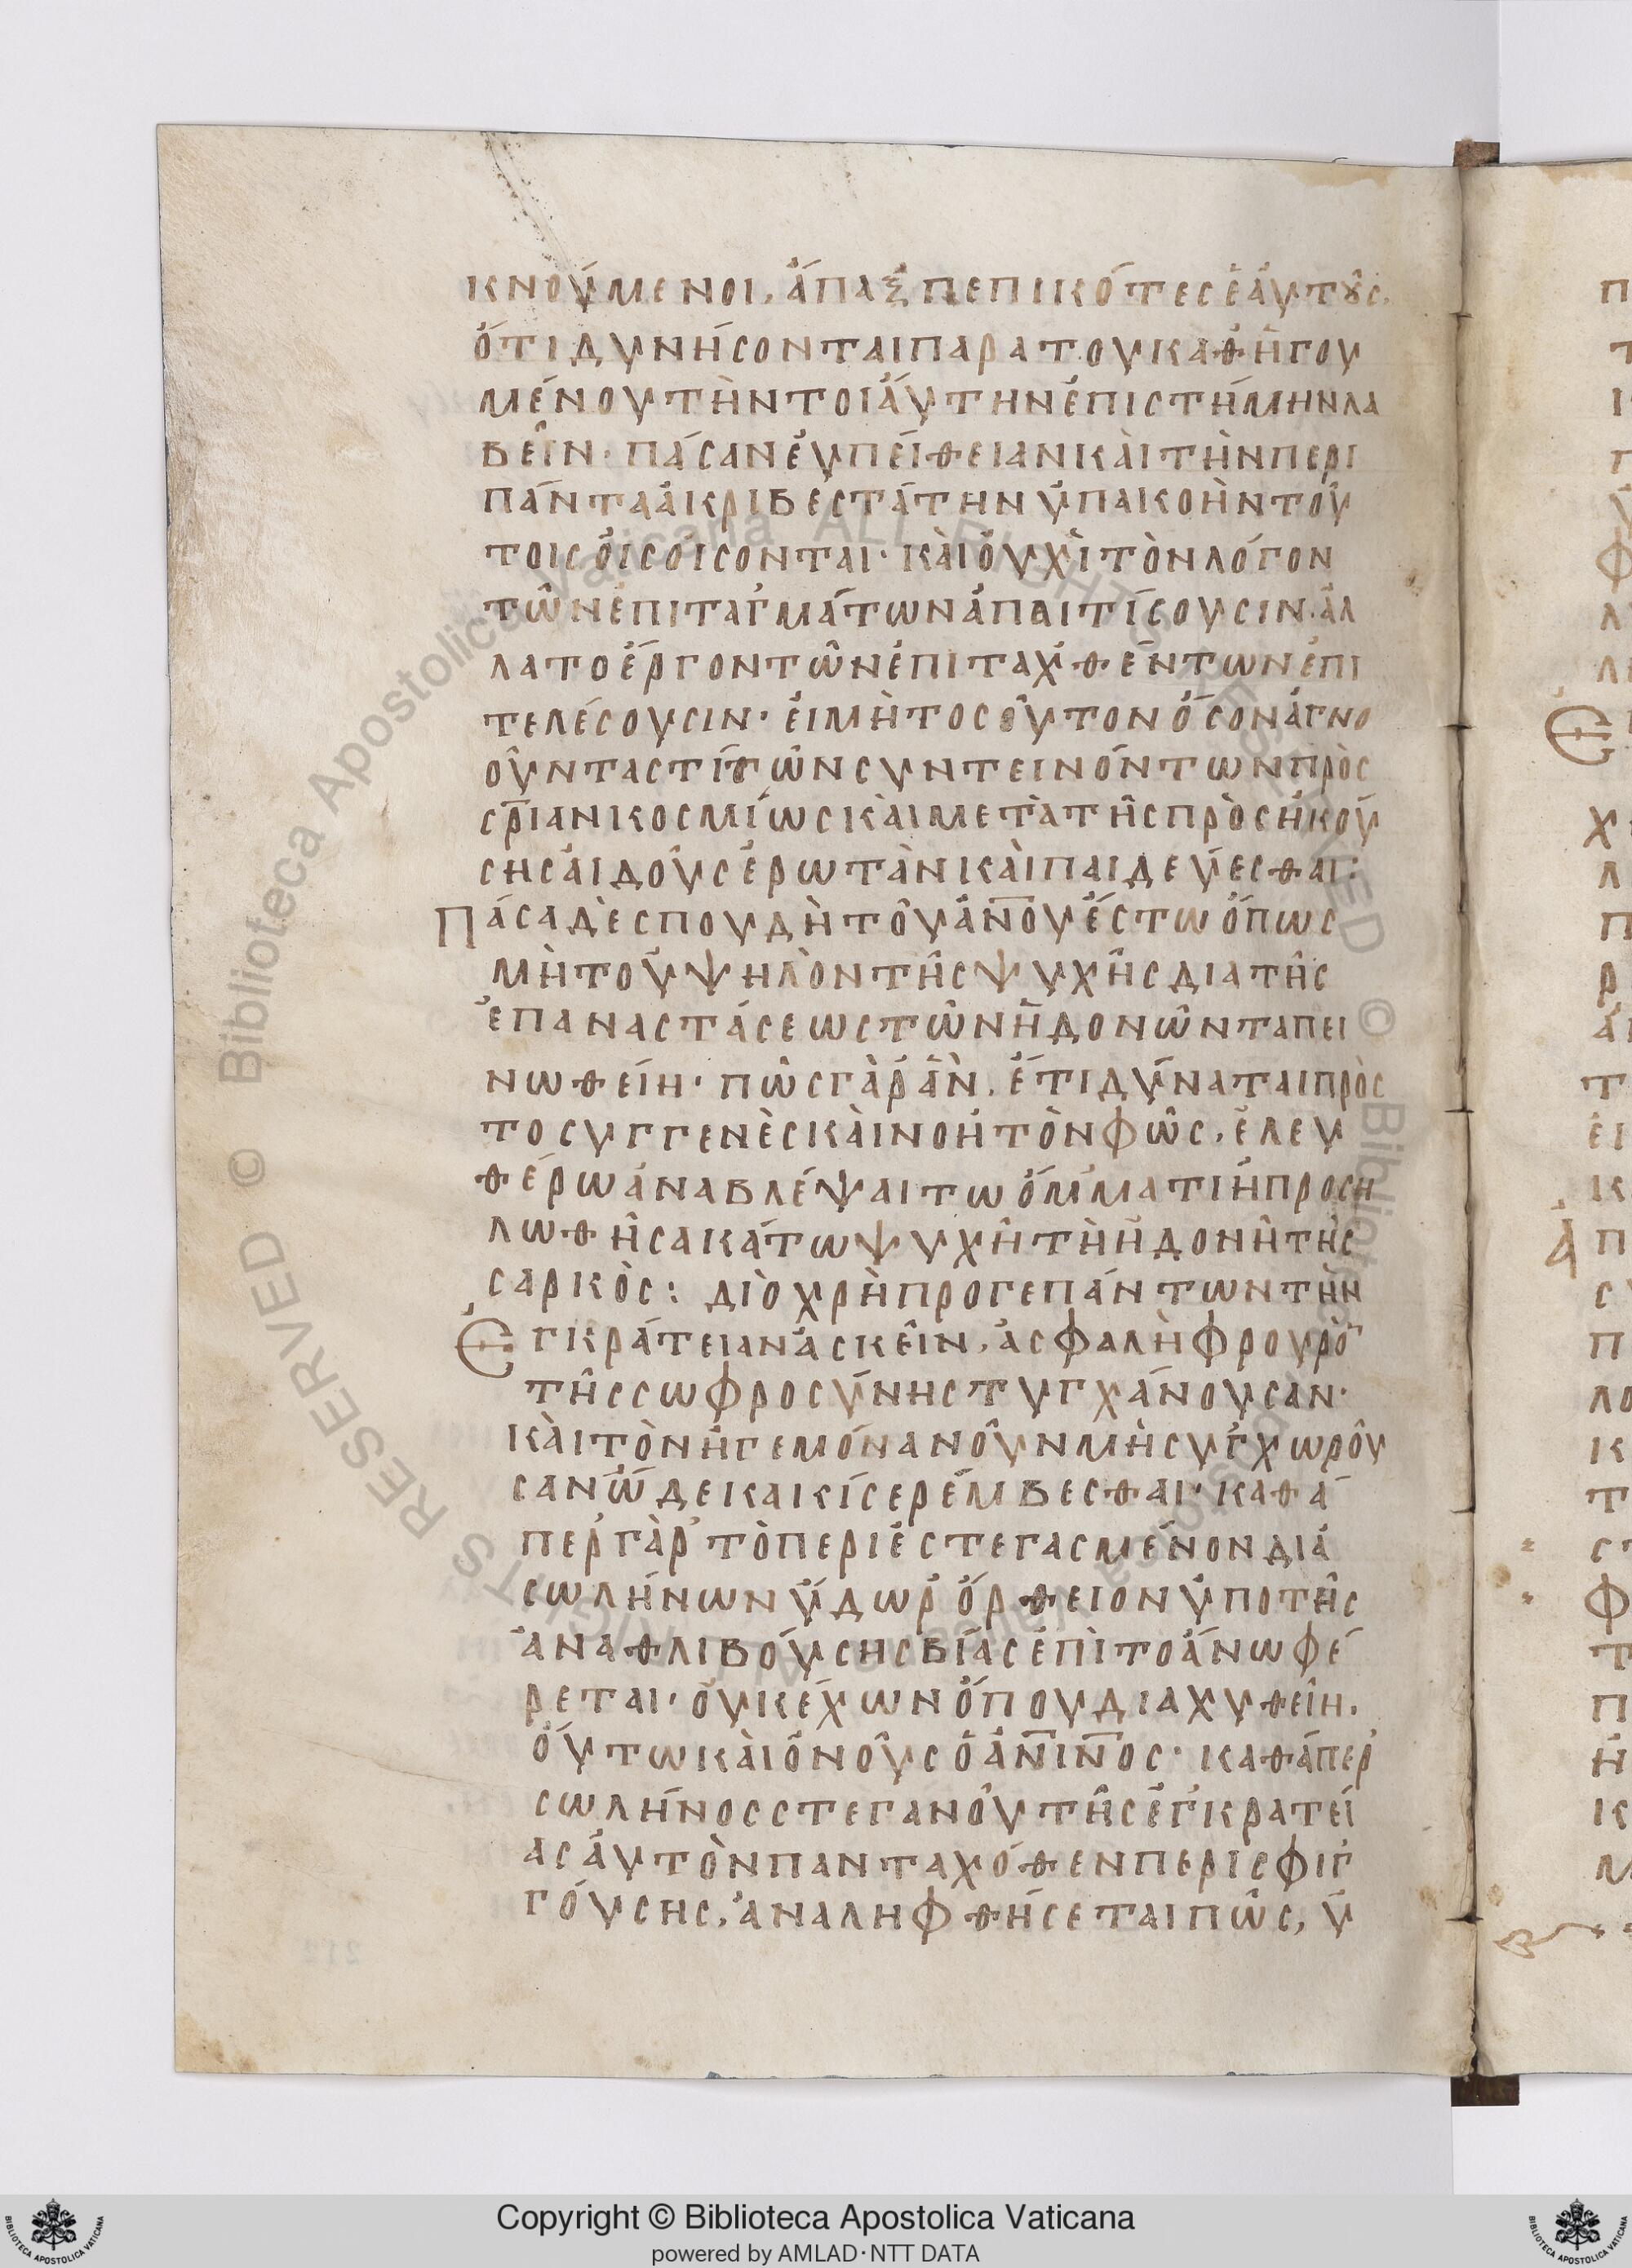 κνούμενοι, ἅπαξ πεπικότες ἑαυτοὺς,
ὅτι δυνήσονται παρα του καθηγου
μένου τὴν τοιάυτην ἐπιστήμην λα
βεῖν· πάσαν ἐυπείθειαν κὰι τὴν περι
πάντα ἀκριβεστάτην ὑπαικοὴν τού
τοις ὀισόισονται· κὰι ὀυχὶ τὸν λόγον
τῶν ἐπιταγμάτων ἀπαιτίσουσιν· ἀλ
λα το ἔργον τῶν ἐπιταχθέντων ἐπι
τελέσουσιν· ἐι μὴ τοσοῦτον ὅσον ἀγνο
οῦντας τί τῶν συντεινόντων πρὸς
σρ̅ιαν ικοσμίως κὰι μετὰ τῆς πρὸσηκού
σης ἀιδοῦς ἐρωτὰν κὰι παιδεύεσθαι:
Πάσα δὲ σπουδὴ τοῦ ἀν̅ου ἔστω ὅπως
μὴ το ὑψηλὸν τῆς ψυχῆς δια τῆς
ἐπαναστάσεως τῶν ἡδονῶν ταπει
νωθείη· πῶς γὰρ ἂν, ἔτι δύναται πρὸς
το συγγενὲς κὰι νοητὸν φῶς, ἐλευ
θέρω ἀναβλέψαι τω ὄμματι ἡ προση
λωθῆσα κάτω ψυχῆ τὴ ἡδονῆ τῆς
σαρκὸς: διὸ χρὴ προ γε πάντων τὴν
Ἐγκράτειαν ἀσκεῖν, ἀσφαλὴ φρουρὸ
τῆς σωφροσύνης τυγχάνουσαν·
κὰι τὸν ἡγεμόνα νοῦν μὴ συγχωροῦ
σαν ὧδε και κίσε ρέμβεσθαι· καθά
περ γὰρ τὸ περιεστεγασμένον διά
σωλήνων ὕδωρ ὄρθειον ὑπο τῆς
ἀναθλιβούσης βίας ἐπὶ το ἄνω φέ
ρεται· ὀυκ έχων ὅπου διαχυθεῖη.
ὅυτω κὰι ὁ νοῦς ὁ ἀν̅ιν̅ος· καθάπερ
σωλήνος στεγανοῦ τῆς ἐγκρατεί
ας ἀυτὸν πανταχόθεν περισφιγ
γόυσης, ἀναληφθήσεται πῶς, ὑ
Copyright © Biblioteca Apostolica Vaticana
powered by AMLAD·NTT DATA